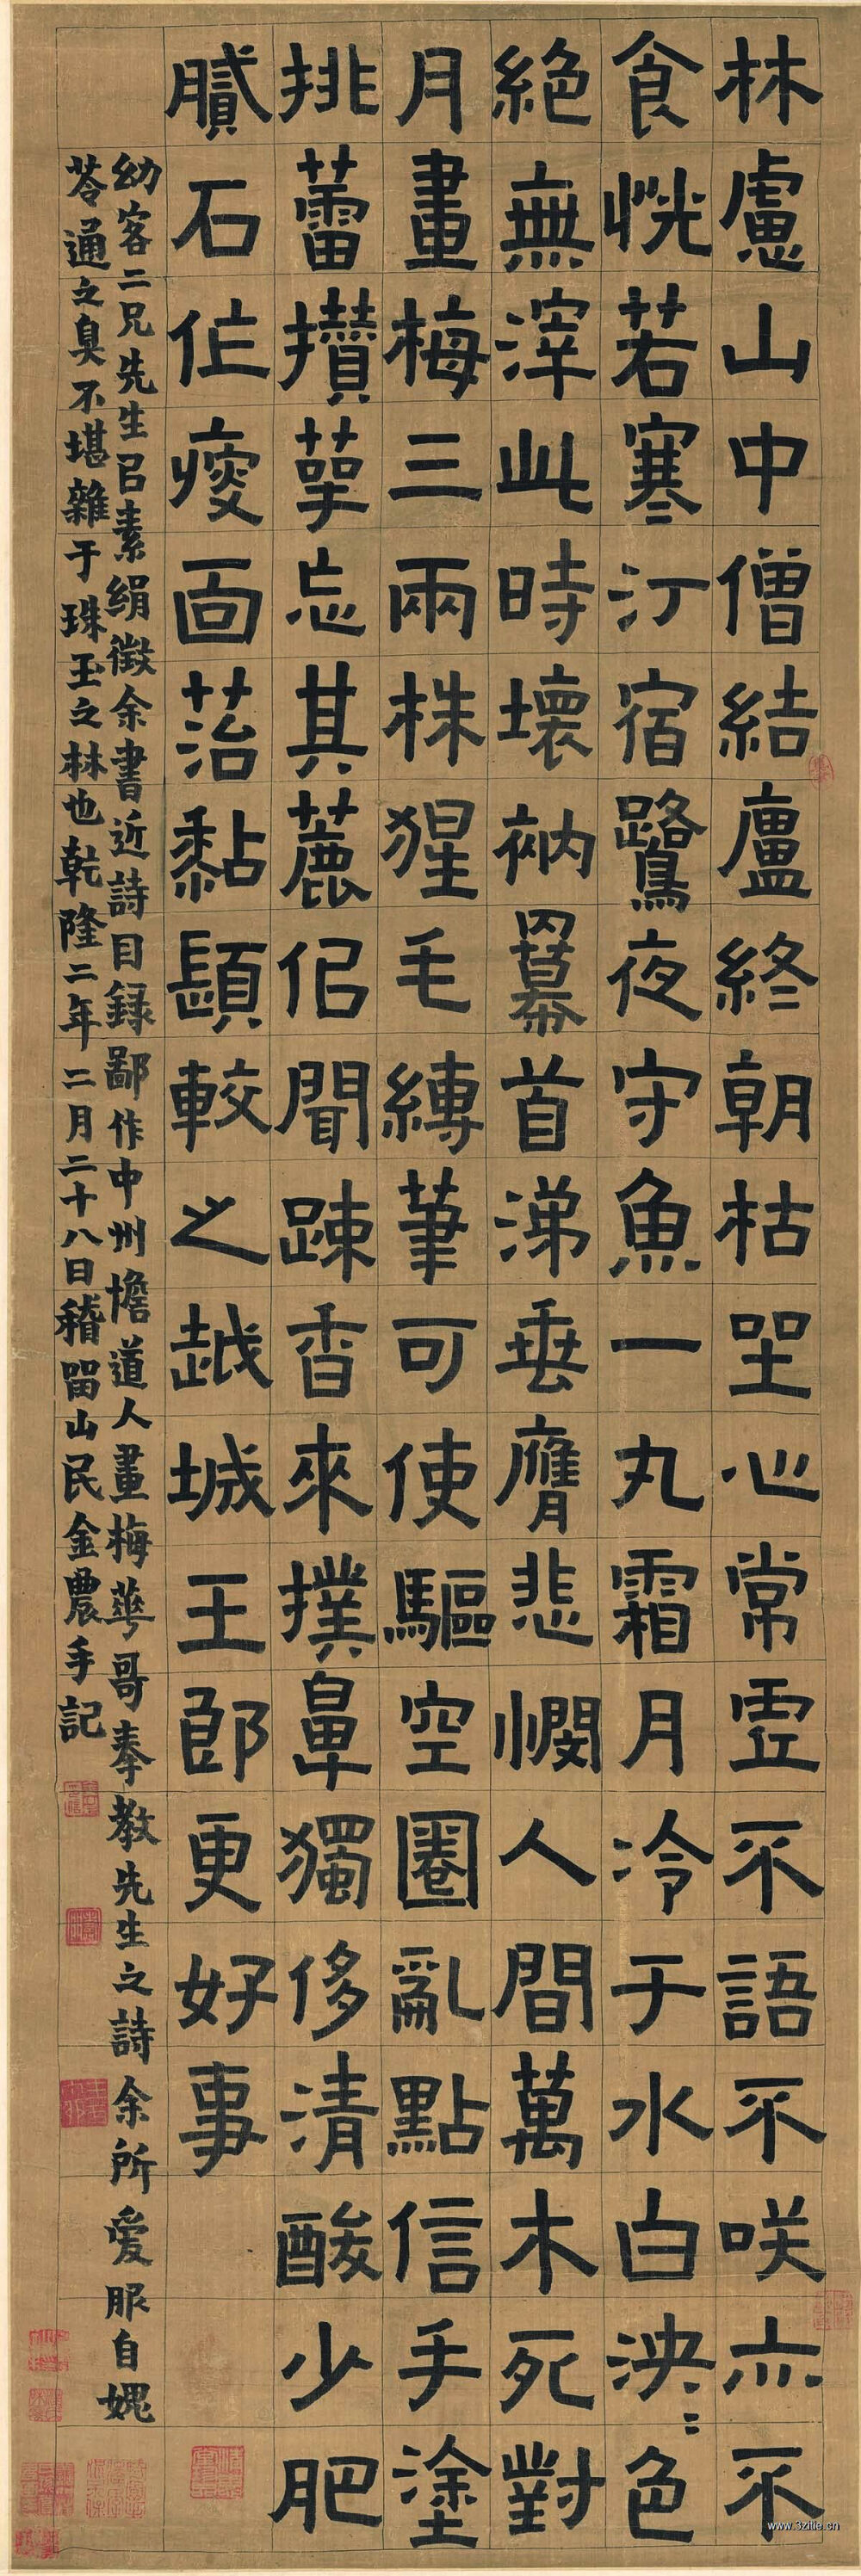 林慮山中僧結廬終朝枯坐心常虛不語不咲亦不
食恍若寒汀宿鷺夜守魚一丸霜月冷于水白泱〻色
絕無滓此時壞衲羃首涕垂膺悲憫人間萬木死對
月畫梅三兩株猩毛縛筆可使驅空圈亂點信手塗
挑蕾攢萼忘其麤佀聞踈香來撲鼻獨侈清酸少肥
膩石作瘦面苔黏顋較之越城王郎更好事
幼客二兄先生㠯素絹徵余書近詩目錄鄙作中州憺道人畫梅華哥奉教先生之詩余所愛服自媿
苓通之臭不堪雜于珠玉之林也乾隆二年二月二十八日稽留山民金農手記
www.3zitie.cn